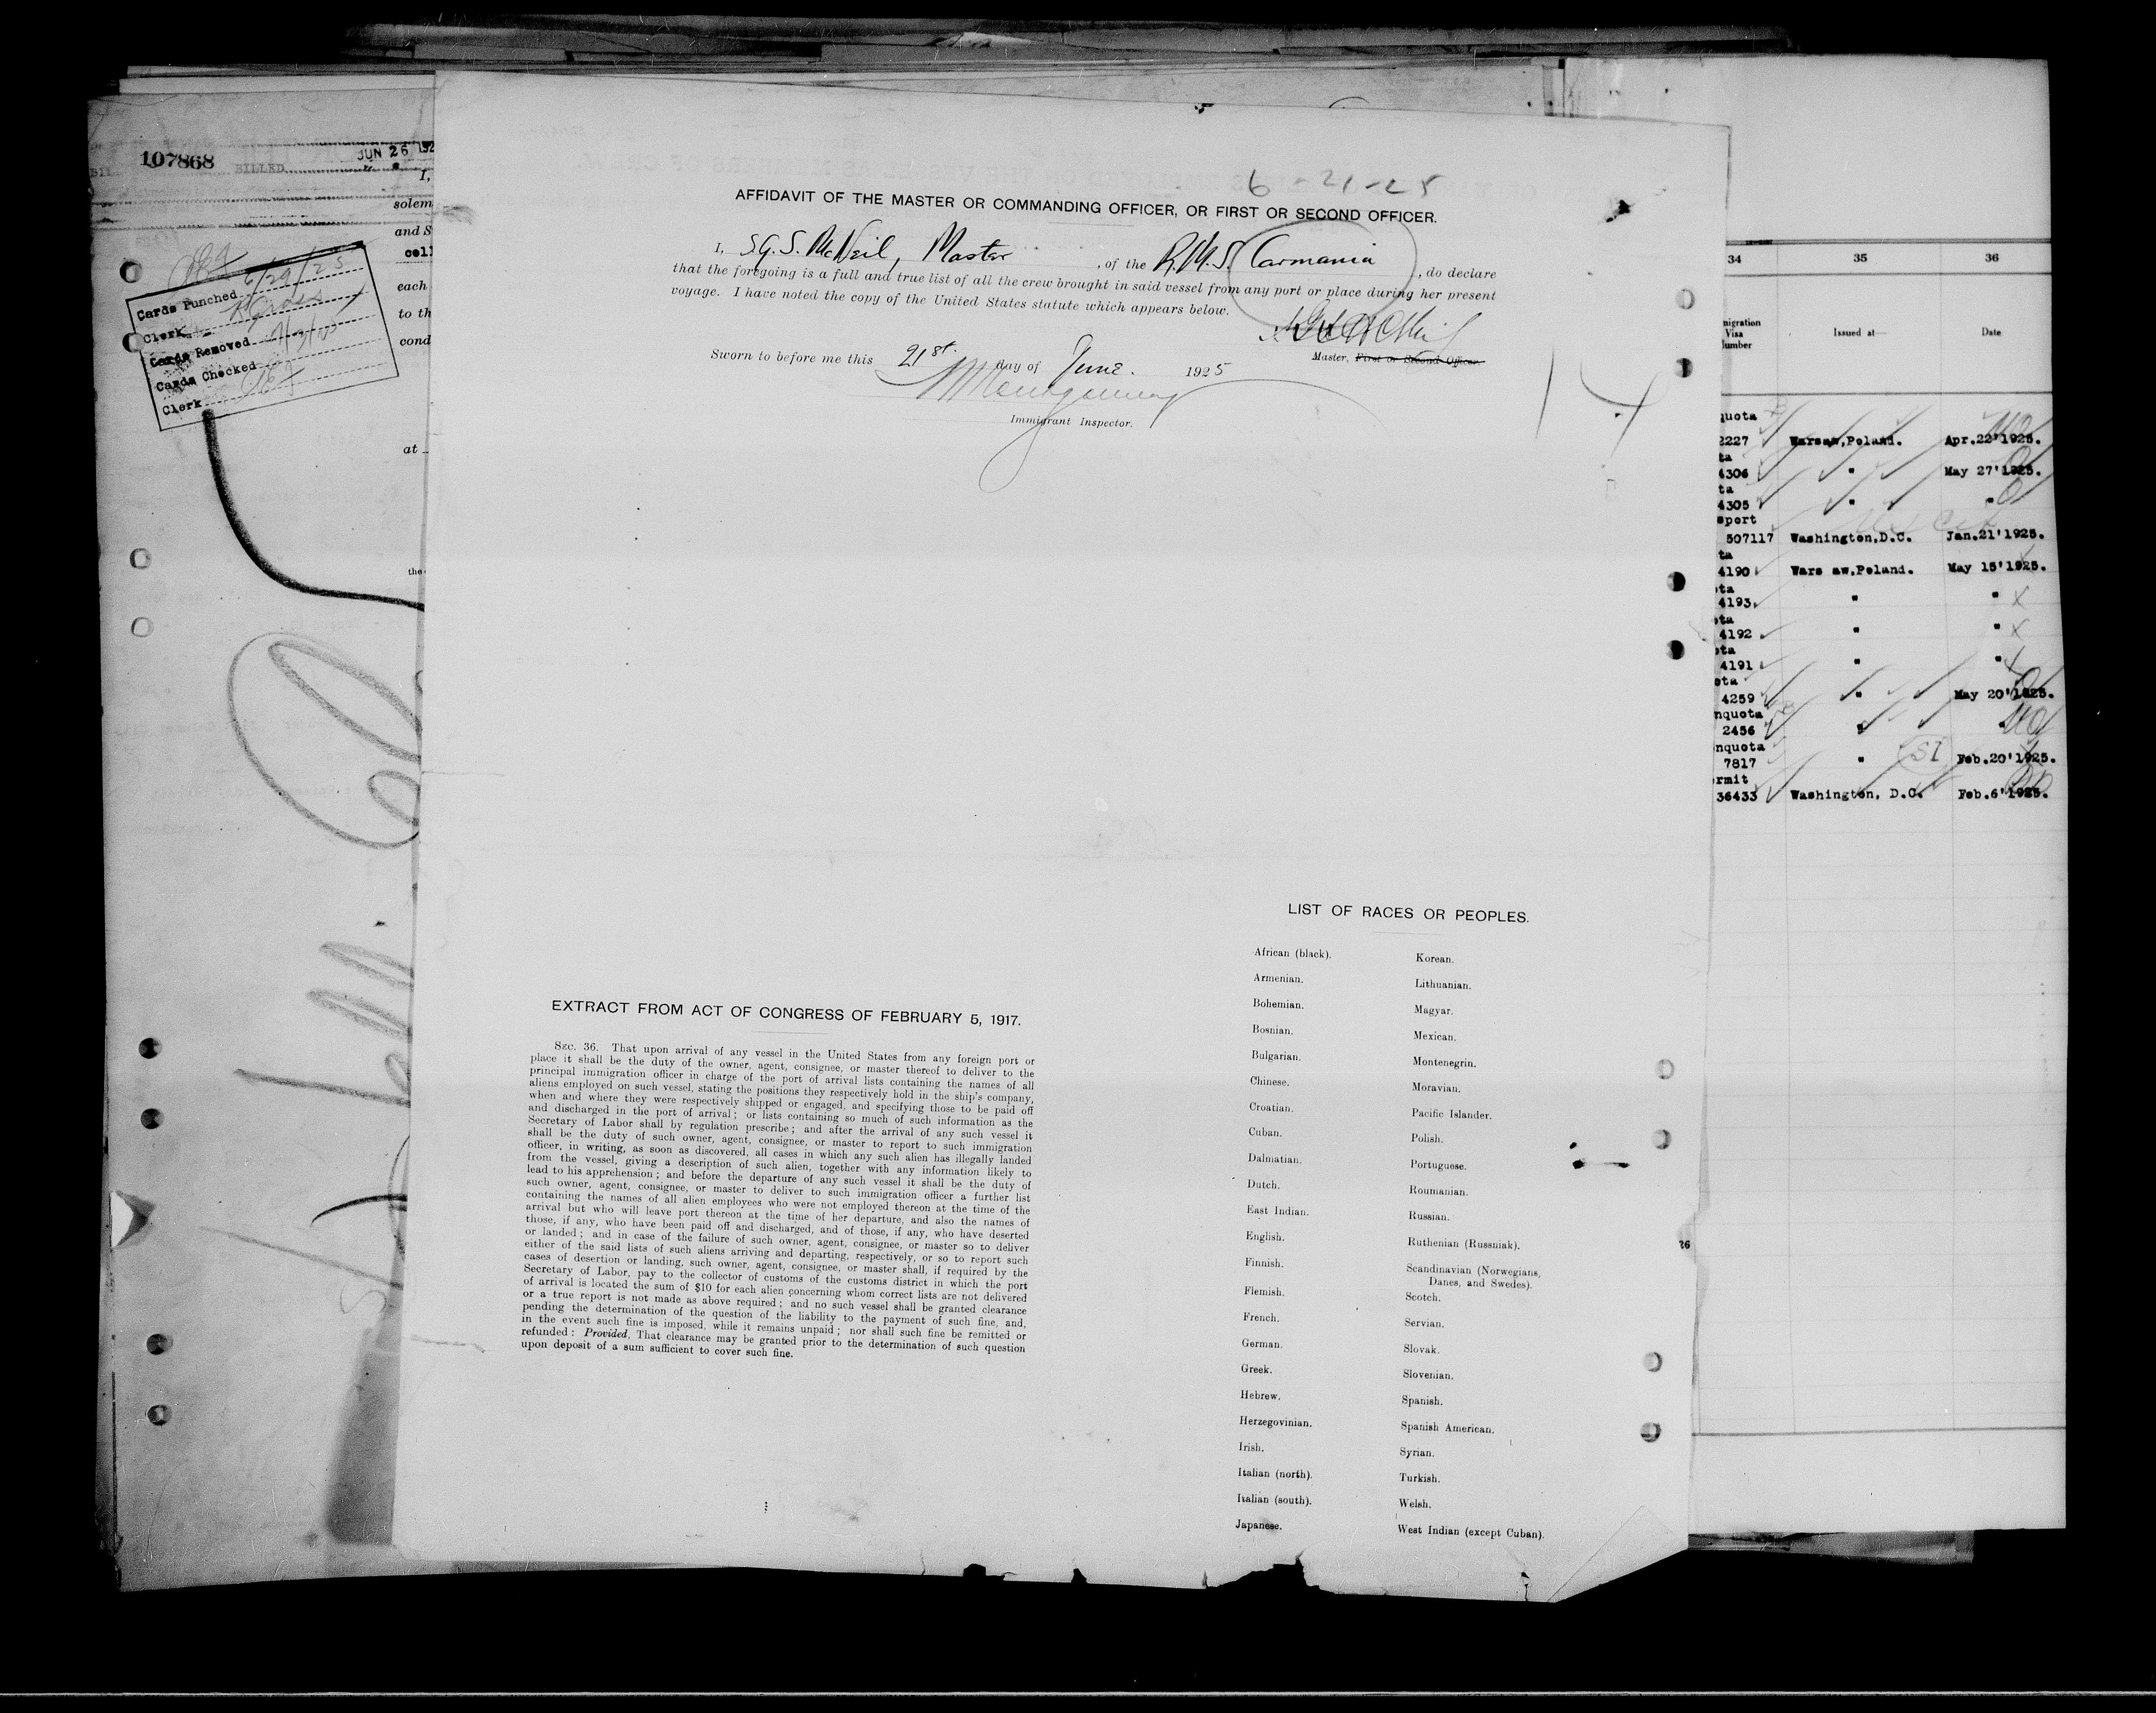 107868
BILLED
JUN 26 192
I,
solem
and S
cell
each
to th
cond
at
the
Cards Punched 6/29/25
Clerk
Cards Removed
Cards Checked
Clerk
6-21-25
AFFIDAVIT OF THE MASTER OR COMMANDING OFFICER, OR FIRST OR SECOND OFFICER.
I, S.G.S. McNeil, Master, of the R.M.S. Carmania, do declare
that the foregoing is a full and true list of all the crew brought in said vessel from any port or place during her present
voyage. I have noted the copy of the United States statute which appears below.
Master, First or Second Officer.
Sworn to before me this 21st. day of June. 1925
Montgomery
Immigrant Inspector.
EXTRACT FROM ACT OF CONGRESS OF FEBRUARY 5, 1917.
SEC. 36. That upon arrival of any vessel in the United States from any foreign port or
place it shall be the duty of the owner, agent, consignee, or master thereof to deliver to the
principal immigration officer in charge of the port of arrival lists containing the names of all
aliens employed on such vessel, stating the positions they respectively hold in the ship's company,
when and where they were respectively shipped or engaged, and specifying those to be paid off
and discharged in the port of arrival; or lists containing so much of such information as the
Secretary of Labor shall by regulation prescribe; and after the arrival of any such vessel it
shall be the duty of such owner, agent, consignee, or master to report to such immigration
officer, in writing, as soon as discovered, all cases in which any such alien has illegally landed
from the vessel, giving a description of such alien, together with any information likely to
lead to his apprehension; and before the departure of any such vessel it shall be the duty of
such owner, agent, consignee, or master to deliver to such immigration officer a further list
containing the names of all alien employees who were not employed thereon at the time of the
arrival but who will leave port thereon at the time of her departure, and also the names of
those, if any, who have been paid off and discharged, and of those, if any, who have deserted
or landed; and in case of the failure of such owner, agent, consignee, or master so to deliver
either of the said lists of such aliens arriving and departing, respectively, or so to report such
cases of desertion or landing, such owner, agent, consignee, or master shall, if required by the
Secretary of Labor, pay to the collector of customs of the customs district in which the port
of arrival is located the sum of $10 for each alien concerning whom correct lists are not delivered
or a true report is not made as above required; and no such vessel shall be granted clearance
pending the determination of the question of the liability to the payment of such fine, and,
in the event such fine is imposed, while it remains unpaid; nor shall such fine be remitted or
refunded: Provided, That clearance may be granted prior to the determination of such question
upon deposit of a sum sufficient to cover such fine.
LIST OF RACES OR PEOPLES.
African (black).
Armenian.
Bohemian.
Bosnian.
Bulgarian.
Chinese.
Croatian.
Cuban.
Dalmatian.
Dutch.
East Indian.
English.
Finnish.
Flemish.
French.
German.
Greek.
Hebrew.
Herzegovinian.
Irish.
Italian (north).
Italian (south).
Japanese.
Korean.
Lithuanian.
Magyar.
Mexican.
Montenegrin.
Moravian.
Pacific Islander.
Polish.
Portuguese.
Roumanian.
Russian.
Ruthenian (Russniak).
Scandinavian (Norwegians,
Danes, and Swedes).
Scotch.
Servian.
Slovak.
Slovenian.
Spanish.
Spanish American.
Syrian.
Turkish.
Welsh.
West Indian (except Cuban).
26
34 35 36
migration
Visa
Number
Issued at
Date
quota
2227 Warsaw,Poland. Apr.22'1925.
ta
4306 " May 27'1925.
ta
4305 " "
sport
507117 Washington,D.C. Jan.21'1925.
ta
4190 Wars aw,Poland. May 15'1925.
ta
4193 " "
ota
4192 " "
ota
4191 " "
ota
4259 " May 20'1925.
nquota
2456 " "
nquota
7817 " SI Feb.20'1925.
rmit
36433 Washington, D.C. Feb.6'1925.